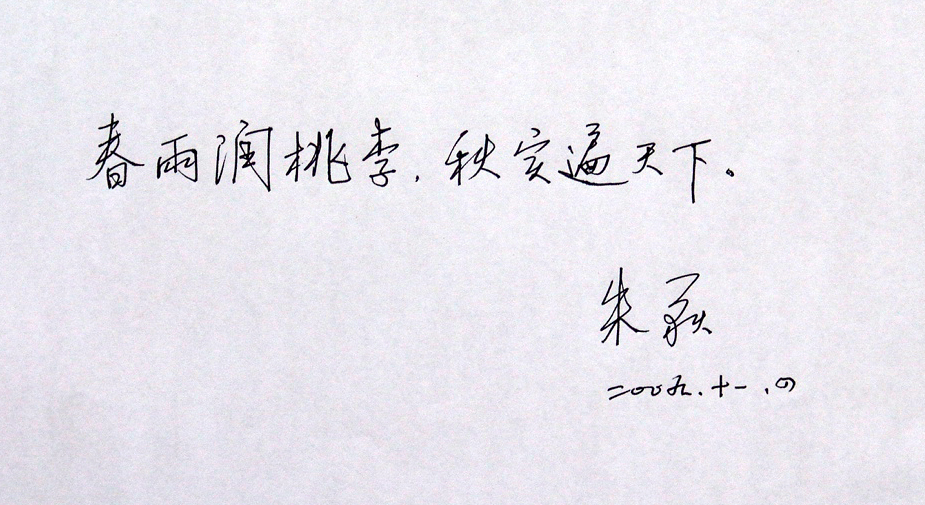 春雨润桃李，秋实遍天下。
朱
二〇〇九.十一.四